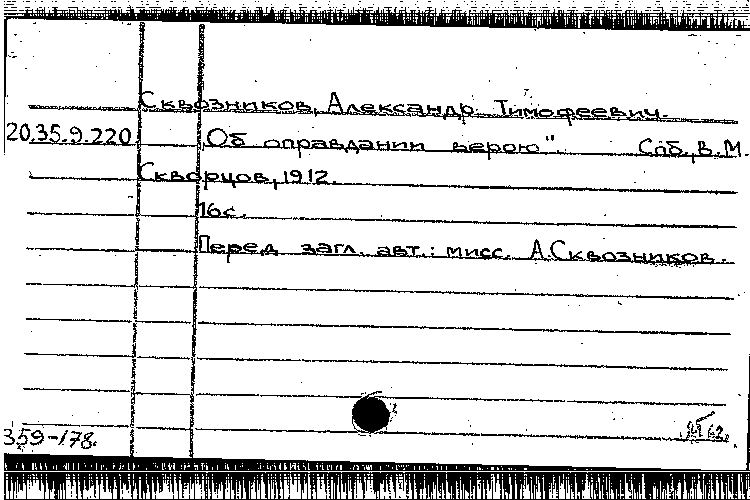 Сквозников, Александр Тимофеевич.
20.35.9.220. „Об оправдании верою". Спб., В.М.
Скворцов, 1912.
16с.
Перед загл. авт.: мисс. А.Сквозников.
359-178.